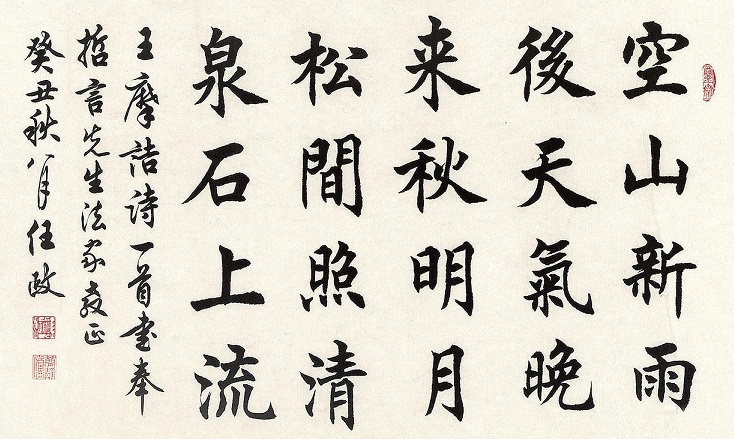 空山新雨
後天氣晚
来秋明月
松間照清
泉石上流
王摩詰詩一首書奉
哲言先生法家教正
癸丑秋八月任政